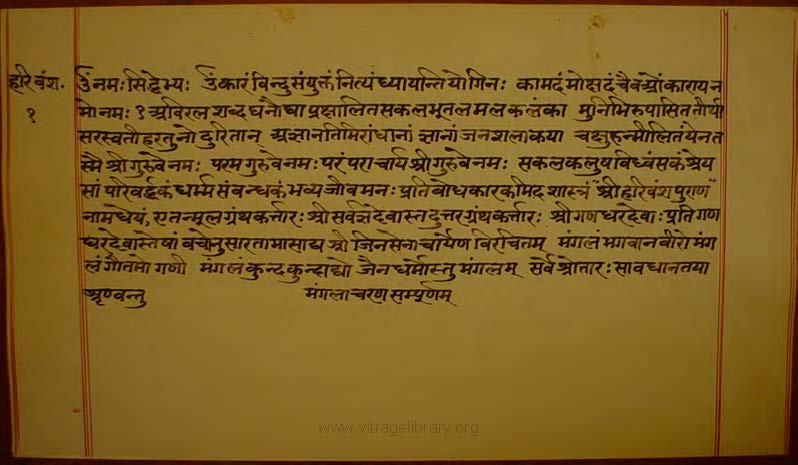 हरिवंश. ॐ नमः सिद्धेभ्यः ॐकारं विन्दुसंयुक्तं नित्यं ध्यायन्ति योगिनः कामदं मोक्षदं चैव ओंकाराय न
१ मोनमः १ अविरलशब्दघनौघाप्रक्षालितसकलभूतलमलकलंका मुनिभिरुपासिततीर्था
सरस्वतीहरतुनोदुरितान् अज्ञानतिमिरांधानां ज्ञानांजनशलाकया चक्षुरुन्मीलितंयेनत
स्मै श्रीगुरुवेनमः परमगुरुवेनमः परंपराचार्यश्रीगुरुवेनमः सकलकलुषविध्वंसकं श्रेय
सां परिवर्द्धकं धर्म्मसंवन्धकं भव्यजीवमनः प्रतिवोधकारकमिदं शास्त्रं "श्रीहरिवंशपुराण"
नामधेयं, एतन्मूलग्रंथकर्त्तारः श्रीसर्वज्ञदेवास्तदुत्तरग्रंथकर्त्तारः श्रीगणधरदेवाः प्रतिगण
धरदेवास्तेषां वचोनुसारतामासाद्य श्रीजिनसेनाचार्येण विरचितम् मंगलंभगवानवीरो मंग
लंगौतमोगणी मंगलंकुन्दकुन्दाद्यो जैनधर्मोस्तुमंगलम् सर्वेश्रोतारः सावधानतया
श्रृण्वन्तु मंगलाचरण सम्पूर्णम्
www.vitragelibrary.org